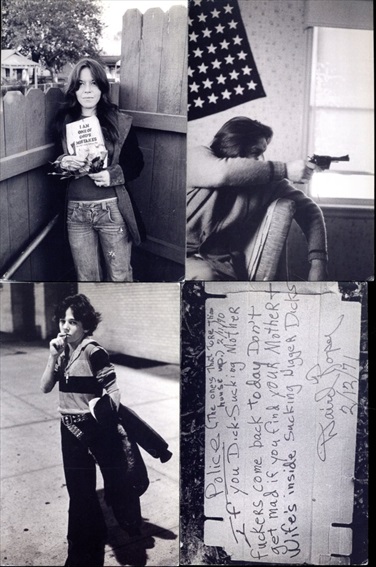 I AM
Police (The ones that broke this
house up.) 2/4/70
If you Dick Sucking Mother
fuckers come back today Don't
get mad if you find your Mother +
Wife's inside sucking Nigger Dicks
David Roper
2/12/71